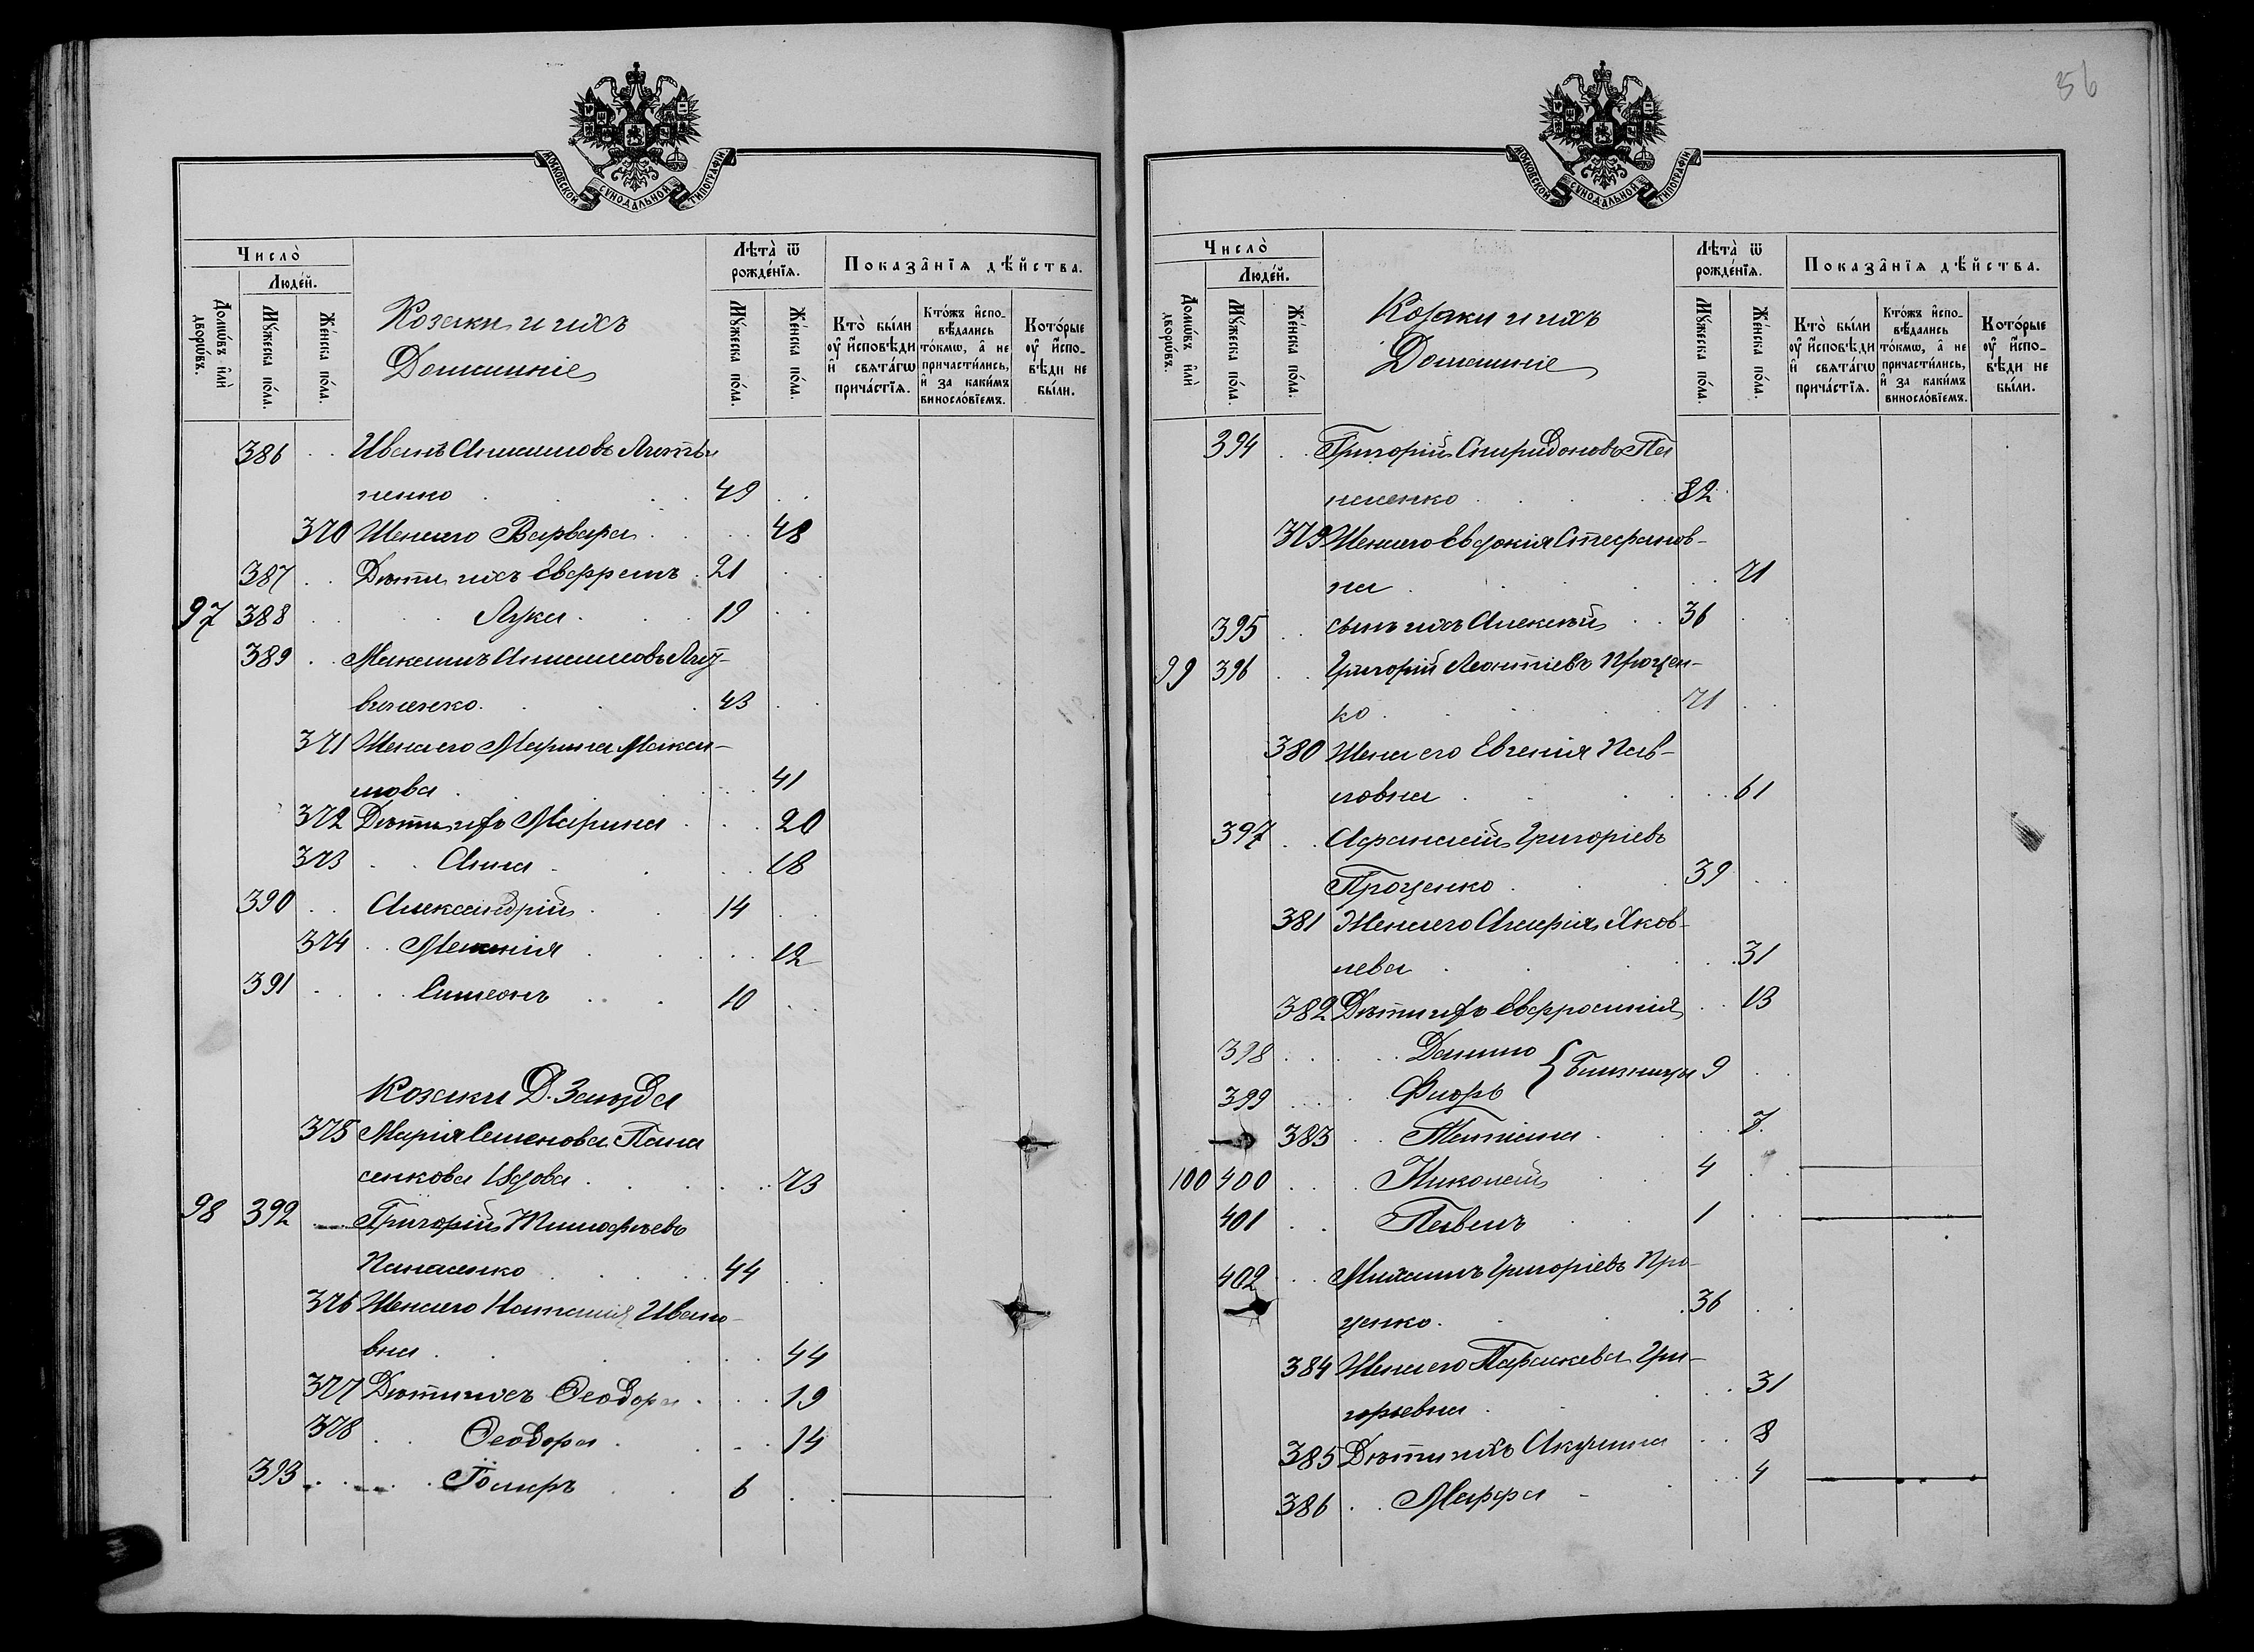 МОСКОВСКОЙ СѴНОДАЛЬНОЙ ТИПОГРАФІИ
Число̀
Людéй.
Домѡ́въ и҆лѝ дворѡ́въ.
Мꙋ́жеска по́ла.
Же́нска по́ла.
Козаки и ихъ
Домашніе
Лѣта̀ ѿ рожде́нїѧ.
Мꙋ́жеска по́ла.
Же́нска по́ла.
Показа̂нїѧ дѣ́йства.
Кто̀ бы́ли оу҆ и҆сповѣди и҆ свѧта́гѡ прича́стїѧ.
Кто́жъ и҆спо-вѣдались то́кмѡ, а҆ не причасти́лись, и҆ за каки́мъ виносло́вїемъ.
Кото́рые оу҆ и҆спо-вѣди не бы́ли.
386 Иванъ Анисимовъ
ненко 49
370 Жена его Варвара 48
387 Дѣти ихъ Евфремъ 21
97 388 Лука 19
389 Максимъ Анисимовъ Лит-
виненко 43
371 Жена его Марина Макси-
мова 41
372 Дѣти ихъ Марина 20
373 Анна 18
390 Александрій 14
374 12
391 Симеонъ 10
Козаки Д. Заѣзда
375 Марія Семенова Пана
сенкова Вдова 73
98 392 Григорій Тимофѣевъ
Панасенко 44
376 Жена его Наталія Ивано-
вна 44
377 Дѣти ихъ Ѳеодора 19
378 Ѳеодора 14
393 6
56
МОСКОВСКОЙ СѴНОДАЛЬНОЙ ТИПОГРАФІИ
Число̀
Людéй.
Домѡ́въ и҆лѝ дворѡ́въ.
Мꙋ́жеска по́ла.
Же́нска по́ла.
Козаки и ихъ
Домашніе
Лѣта̀ ѿ рожде́нїѧ.
Мꙋ́жеска по́ла.
Же́нска по́ла.
Показа̂нїѧ дѣ́йства.
Кто̀ бы́ли оу҆ и҆сповѣди и҆ свѧта́гѡ прича́стїѧ.
Кто́жъ и҆спо-вѣдались то́кмѡ, а҆ не причасти́лись, и҆ за каки́мъ виносло́вїемъ.
Кото́рые оу҆ и҆спо-вѣди не бы́ли.
394 Григорій Спиридоновъ
82
379 Жена его Евдокія Стефанов-
на 71
395 сынъ ихъ Алексѣй 36
99 396 Григорій Леонтіевъ Процен-
ко 71
380 Жена его Евгенія Пав-
ловна 61
397 Афанасій Григоріевъ
Проценко 39
381 Жена его Агафія Яков-
лева 31
382 Дѣти ихъ Евфросинія 13
398 Данило
399 Флоръ } близнецы 9
383 Татіана 7
100 400 Николай 4
401 Павелъ 1
402 Михаилъ Григоріевъ Про-
ценко 36
384 Жена его Параскева Гри-
горьевна 31
385 Дѣти ихъ Акулина 8
386 Марфа 4